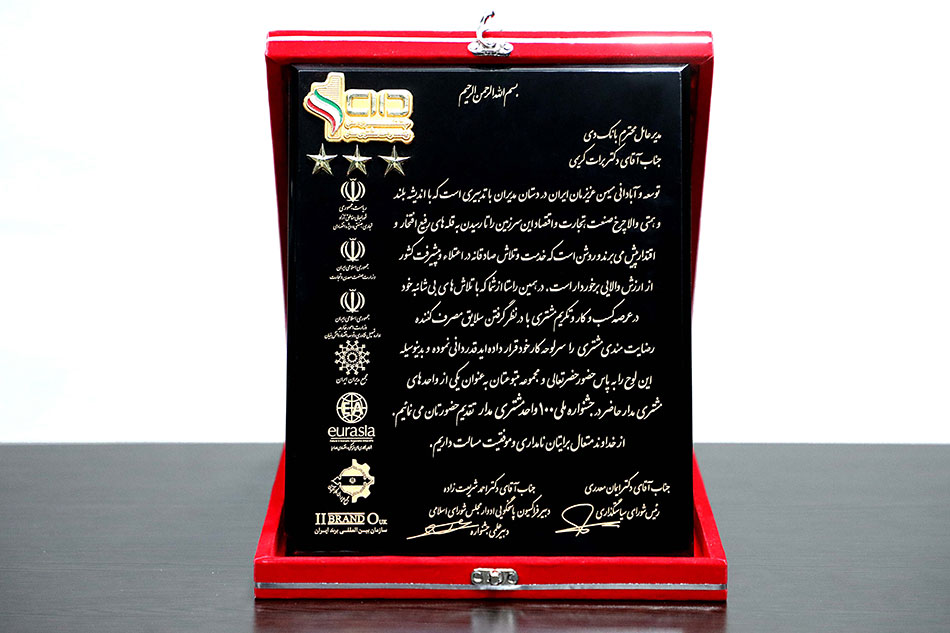 بسم الله الرحمن الرحیم
مدیر عامل محترم بانک دی
جناب آقای دکتر برات کریمی
توسعه و آبادانی میهن عزیزمان ایران در دستان مدیران با تدبیری است که با اندیشه بلند
و همتی والا چرخ صنعت، تجارت و اقتصاد این سرزمین را تا رسیدن به قله های رفیع افتخار و
اقتدار پیش می برند و روشن است که خدمت و تلاش صادقانه در اعتلاء و پیشرفت کشور
از ارزش والایی برخوردار است. در همین راستا از شما که با تلاش های بی شائبه خود
در عرصه کسب و کار و تکریم مشتری با در نظر گرفتن سلایق مصرف کننده
رضایت مندی مشتری را سرلوحه کار خود قرار داده اید قدردانی نموده و بدینوسیله
این لوح را به پاس حضور حضرتعالی و مجموعه متبوعتان به عنوان یکی از واحدهای
مشتری مدار حاضر در جشنواره ملی ۱۰۰ واحد مشتری مدار تقدیم حضورتان می نمائیم.
از خداوند متعال برایتان نامداری و موفقیت مسالت داریم.
جناب آقای دکتر ایمان معدری
رئیس شورای سیاستگذاری
جناب آقای دکتر احمد شریعت زاده
دبیر فراکسیون پاسخگویی ادوار مجلس شورای اسلامی
دبیر علمی جشنواره
100
ریاست جمهوری
جمهوری اسلامی ایران
وزارت صنعت معدن و تجارت
جمهوری اسلامی ایران
وزارت امور خارجه
مجمع مدیران ایران
EA
eurasia
II BRAND O UK
سازمان بین المللی برند ایران